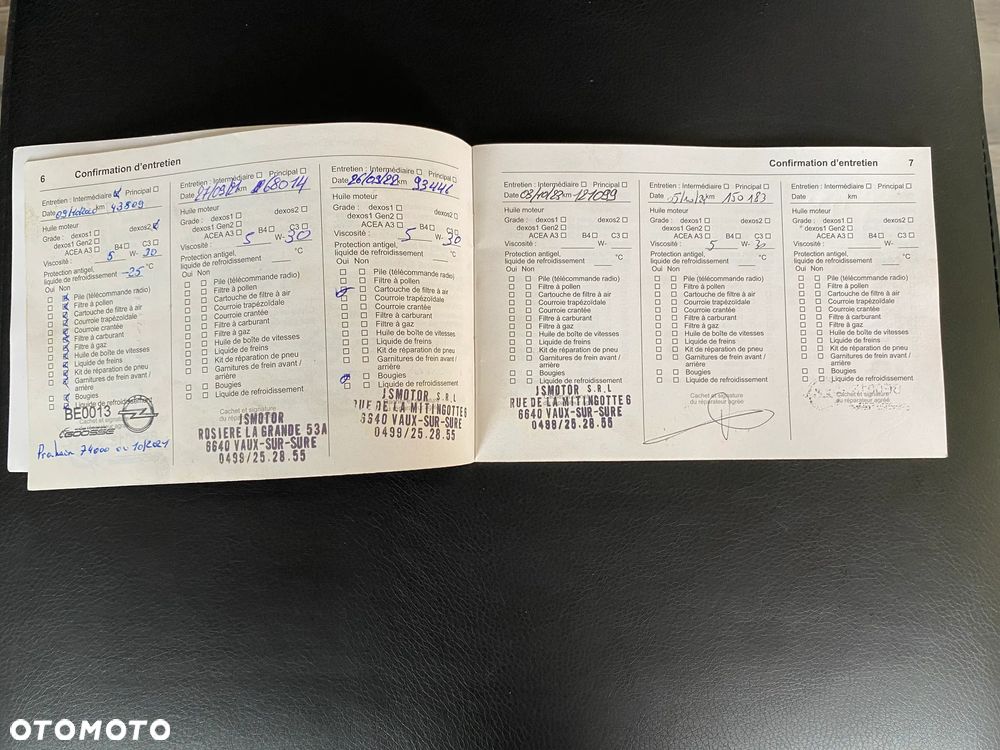 6 Confirmation d'entretien
Entretien : Intermédiaire Principal
Date 43509 km
Huile moteur
Grade : dexos1 dexos2
dexos1 Gen2
ACEA A3 B4 C3
Viscosité : 5 W- 30
Protection antigel,
liquide de refroidissement -25 °C
Oui Non
Pile (télécommande radio)
Filtre à pollen
Cartouche de filtre à air
Courroie trapézoïdale
Courroie crantée
Filtre à carburant
Filtre à gaz
Huile de boîte de vitesses
Liquide de freins
Kit de réparation de pneu
Garnitures de frein avant /
arrière
Bougies
Liquide de refroidissement
BE0013
Cachet et signature
GOOSSE
Prochain 74000 ou 10/2021
Entretien : Intermédiaire Principal
Date 27/09/21 km 68014
Huile moteur
Grade : dexos1 dexos2
dexos1 Gen2
ACEA A3 B4 C3
Viscosité : 5 W- 30
Protection antigel,
liquide de refroidissement °C
Oui Non
Pile (télécommande radio)
Filtre à pollen
Cartouche de filtre à air
Courroie trapézoïdale
Courroie crantée
Filtre à carburant
Filtre à gaz
Huile de boîte de vitesses
Liquide de freins
Kit de réparation de pneu
Garnitures de frein avant /
arrière
Bougies
Liquide de refroidissement
Cachet et signature
JSMOTOR
ROSIERE LA GRANDE 53A
6640 VAUX-SUR-SURE
0499/25.28.55
Entretien : Intermédiaire Principal
Date 26/09/22 km
Huile moteur
Grade : dexos1 dexos2
dexos1 Gen2
ACEA A3 B4 C3
Viscosité : 5 W- 30
Protection antigel,
liquide de refroidissement °C
Oui Non
Pile (télécommande radio)
Filtre à pollen
Cartouche de filtre à air
Courroie trapézoïdale
Courroie crantée
Filtre à carburant
Filtre à gaz
Huile de boîte de vitesses
Liquide de freins
Kit de réparation de pneu
Garnitures de frein avant /
arrière
Bougies
Liquide de refroidissement
JSMOTOR S.R.L
RUE DE LA MITINGOTTE 6
6640 VAUX-SUR-SURE
0499/25.28.55
Confirmation d'entretien 7
Entretien : Intermédiaire Principal
Date 03/10/23 km 121099
Huile moteur
Grade : dexos1 dexos2
dexos1 Gen2
ACEA A3 B4 C3
Viscosité : W-
Protection antigel,
liquide de refroidissement °C
Oui Non
Pile (télécommande radio)
Filtre à pollen
Cartouche de filtre à air
Courroie trapézoïdale
Courroie crantée
Filtre à carburant
Filtre à gaz
Huile de boîte de vitesses
Liquide de freins
Kit de réparation de pneu
Garnitures de frein avant /
arrière
Bougies
Liquide de refroidissement
JSMOTOR S.R.L
RUE DE LA MITINGOTTE 6
6640 VAUX-SUR-SURE
0499/25.28.55
Entretien : Intermédiaire Principal
Date km 150183
Huile moteur
Grade : dexos1 dexos2
dexos1 Gen2
ACEA A3 B4 C3
Viscosité : 5 W- 30
Protection antigel,
liquide de refroidissement °C
Oui Non
Pile (télécommande radio)
Filtre à pollen
Cartouche de filtre à air
Courroie trapézoïdale
Courroie crantée
Filtre à carburant
Filtre à gaz
Huile de boîte de vitesses
Liquide de freins
Kit de réparation de pneu
Garnitures de frein avant /
arrière
Bougies
Liquide de refroidissement
Cachet et signature
du réparateur agréé
Entretien : Intermédiaire Principal
Date km
Huile moteur
Grade : dexos1 dexos2
dexos1 Gen2
ACEA A3 B4 C3
Viscosité : W-
Protection antigel,
liquide de refroidissement °C
Oui Non
Pile (télécommande radio)
Filtre à pollen
Cartouche de filtre à air
Courroie trapézoïdale
Courroie crantée
Filtre à carburant
Filtre à gaz
Huile de boîte de vitesses
Liquide de freins
Kit de réparation de pneu
Garnitures de frein avant /
arrière
Bougies
Liquide de refroidissement
Cachet et signature
du réparateur agréé
OTOMOTO